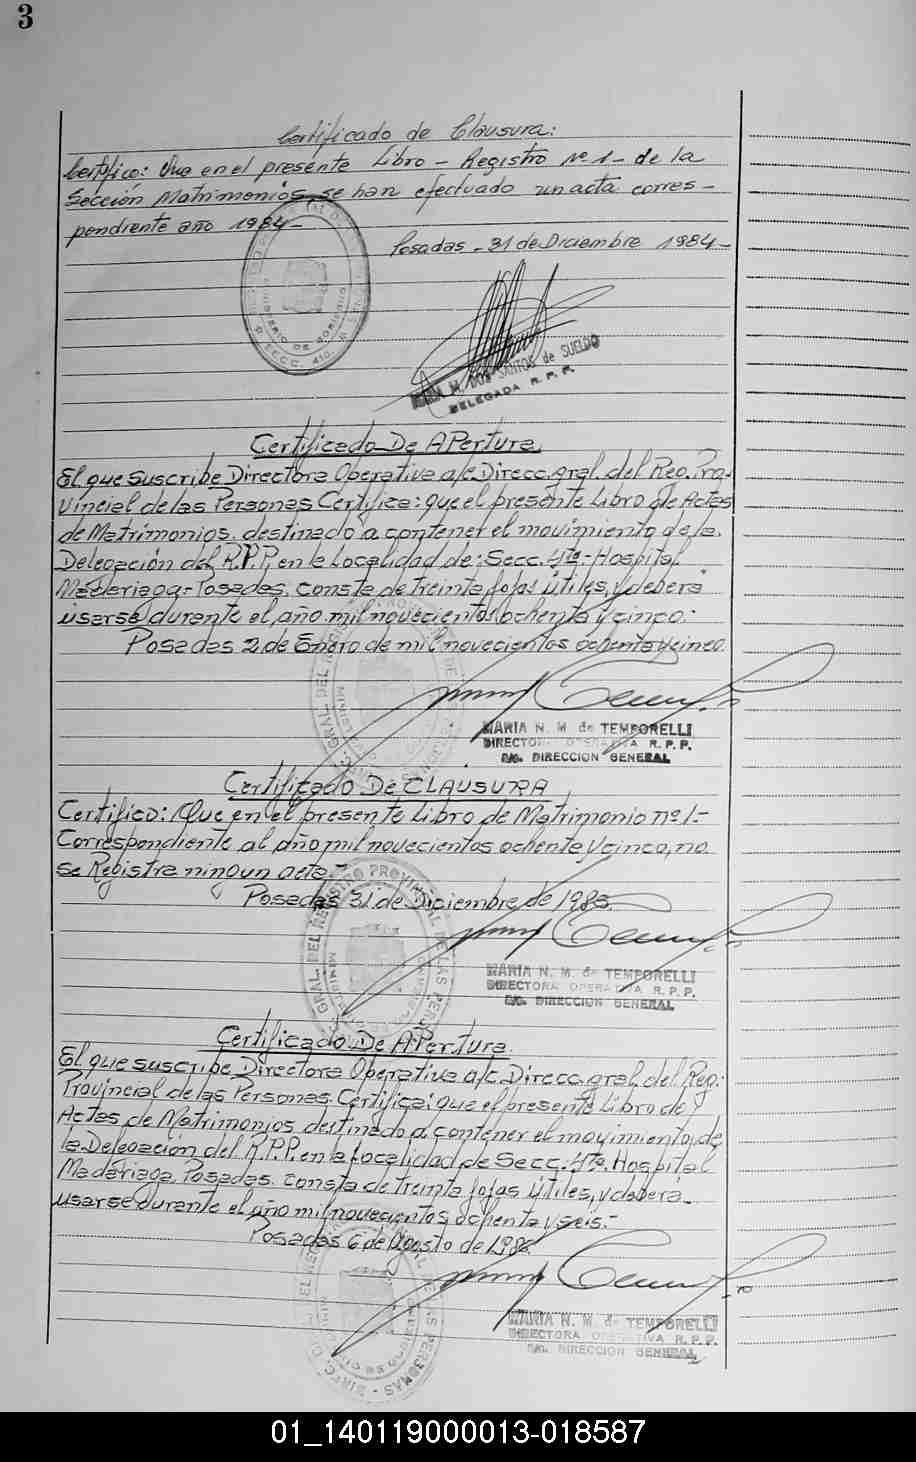 3
Certificado de Clausura:
Certifico: Que en el presente Libro - Registro Nº 1 - de la
Sección Matrimonios se han efectuado un acta corres -
pondiente año 1984 -
Posadas - 31 de Diciembre 1984 -
MINISTERIO DE GOBIERNO
SECC. 4ta.
M. DOS SANTOS de SUELDO
DELEGADA R. P. P.
Certificado De APertura
El que suscribe Directora Operativa a/c. Direcc. gral. del Reg. Pro-
vincial de las Personas Certifica: que el presente Libro de Actas
de Matrimonios, destinado a contener el movimiento de la
Delegación del R.P.P. en la Localidad de: Secc. 4ta.- Hospital
Madariaga - Posadas, consta de treinta fojas útiles, y deberá
usarse durante el año mil novecientos ochenta y cinco:
Posadas 2 de Enero de mil novecientos ochenta y cinco.
MARIA N. M. de TEMPORELLI
DIRECTORA OPERATIVA R. P. P.
a/c. DIRECCION GENERAL
Certificado De CLAUSURA
Certifico: Que en el presente Libro de Matrimonio nº 1.-
Correspondiente al año mil novecientos ochenta y cinco, no
se Registra ningun acta.-
Posadas 31 de Diciembre de 1985.
GRAL. DEL REGISTRO PROVINCIAL DE LAS PERSONAS
MARIA N. M. de TEMPORELLI
DIRECTORA OPERATIVA R. P. P.
a/c. DIRECCION GENERAL
Certificado De APertura
El que suscribe Directora Operativa a/c Direcc. gral. del Reg.
Provincial de las Personas. Certifica: que el presente Libro de
Actas de Matrimonios destinado a contener el movimiento, de
la Delegación del R.P.P. en la Localidad de Secc. 4ta. Hospital
Madariaga Posadas. consta de treinta fojas útiles, y deberá
usarse durante el año mil novecientos ochenta y seis.-
Posadas 6 de Agosto de 1986.
MARIA N. M. de TEMPORELLI
DIRECTORA OPERATIVA R. P. P.
a/c. DIRECCION GENERAL
01_140119000013-018587